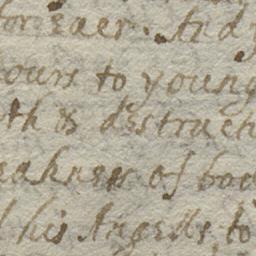 for eaer. And y
ours to young
th & distruct
eaknes of bod
his Angells, to